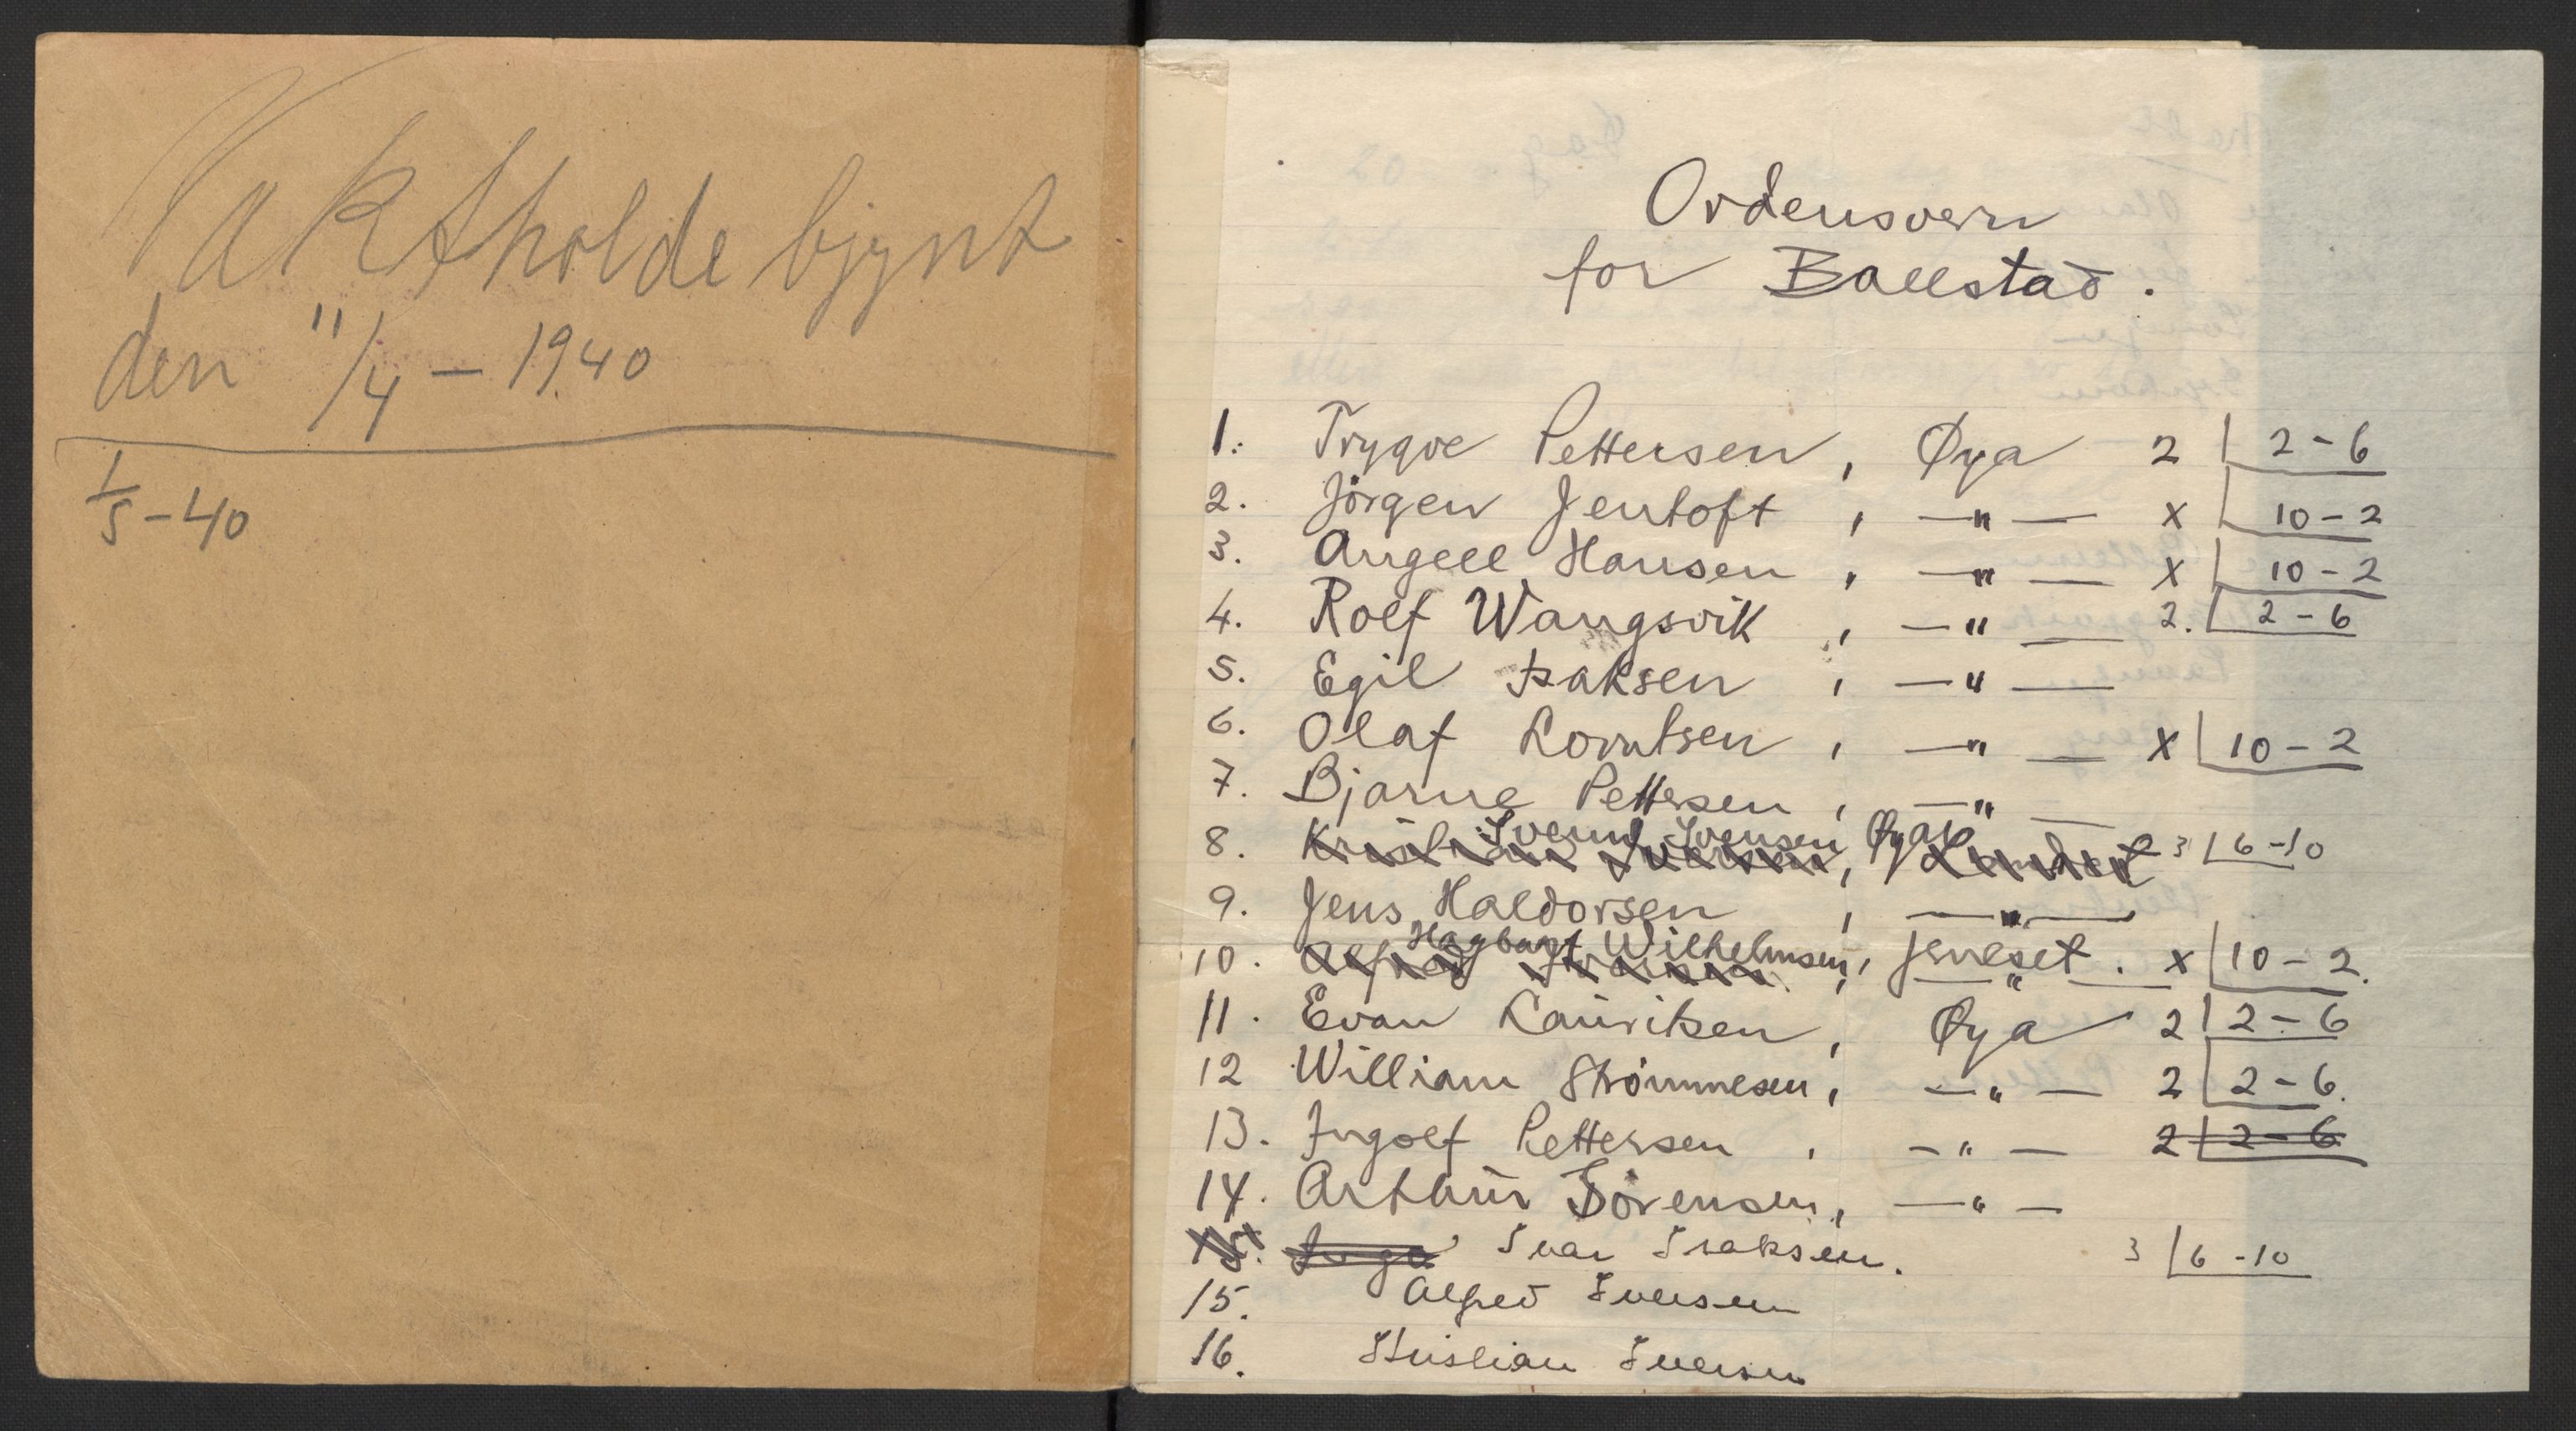 Vaktholde bjynt
den 11/4 - 1940
1/5 - 40
Ordensvern
for Ballstad.
1. Trygve Pettersen, Øya 2 | 2 - 6
2. Jörgen Jentoft, —"— x | 10 - 2
3. Angell Hansen, —"— x | 10 - 2
4. Rolf Wangsvik, —"— 2. | 2 - 6
5. Egil Isaksen, —"—
6. Olaf Lorntsen, —"— x | 10 - 2
7. Bjarne Pettersen, —"—
8. Kristian Iversen, Svennd Ivensen, Øya 3 | 6 - 10
9. Jens Haldorsen, —"—
10. Alfred Iversen Hagbart Wilhelmsen, Jeneset. —"— x | 10 - 2.
11. Evan Lauritsen, Øya 2 | 2 - 6
12 William Strömmesen, —"— 2 | 2 - 6.
13. Ingolf Pettersen, —"— 2 | 2 - 6
14. Arthur Sörensen, —"—
15. Inga Ivar Isaksen. 3 | 6 - 10
15. Alfred Iversen
16. Kristian Iversen